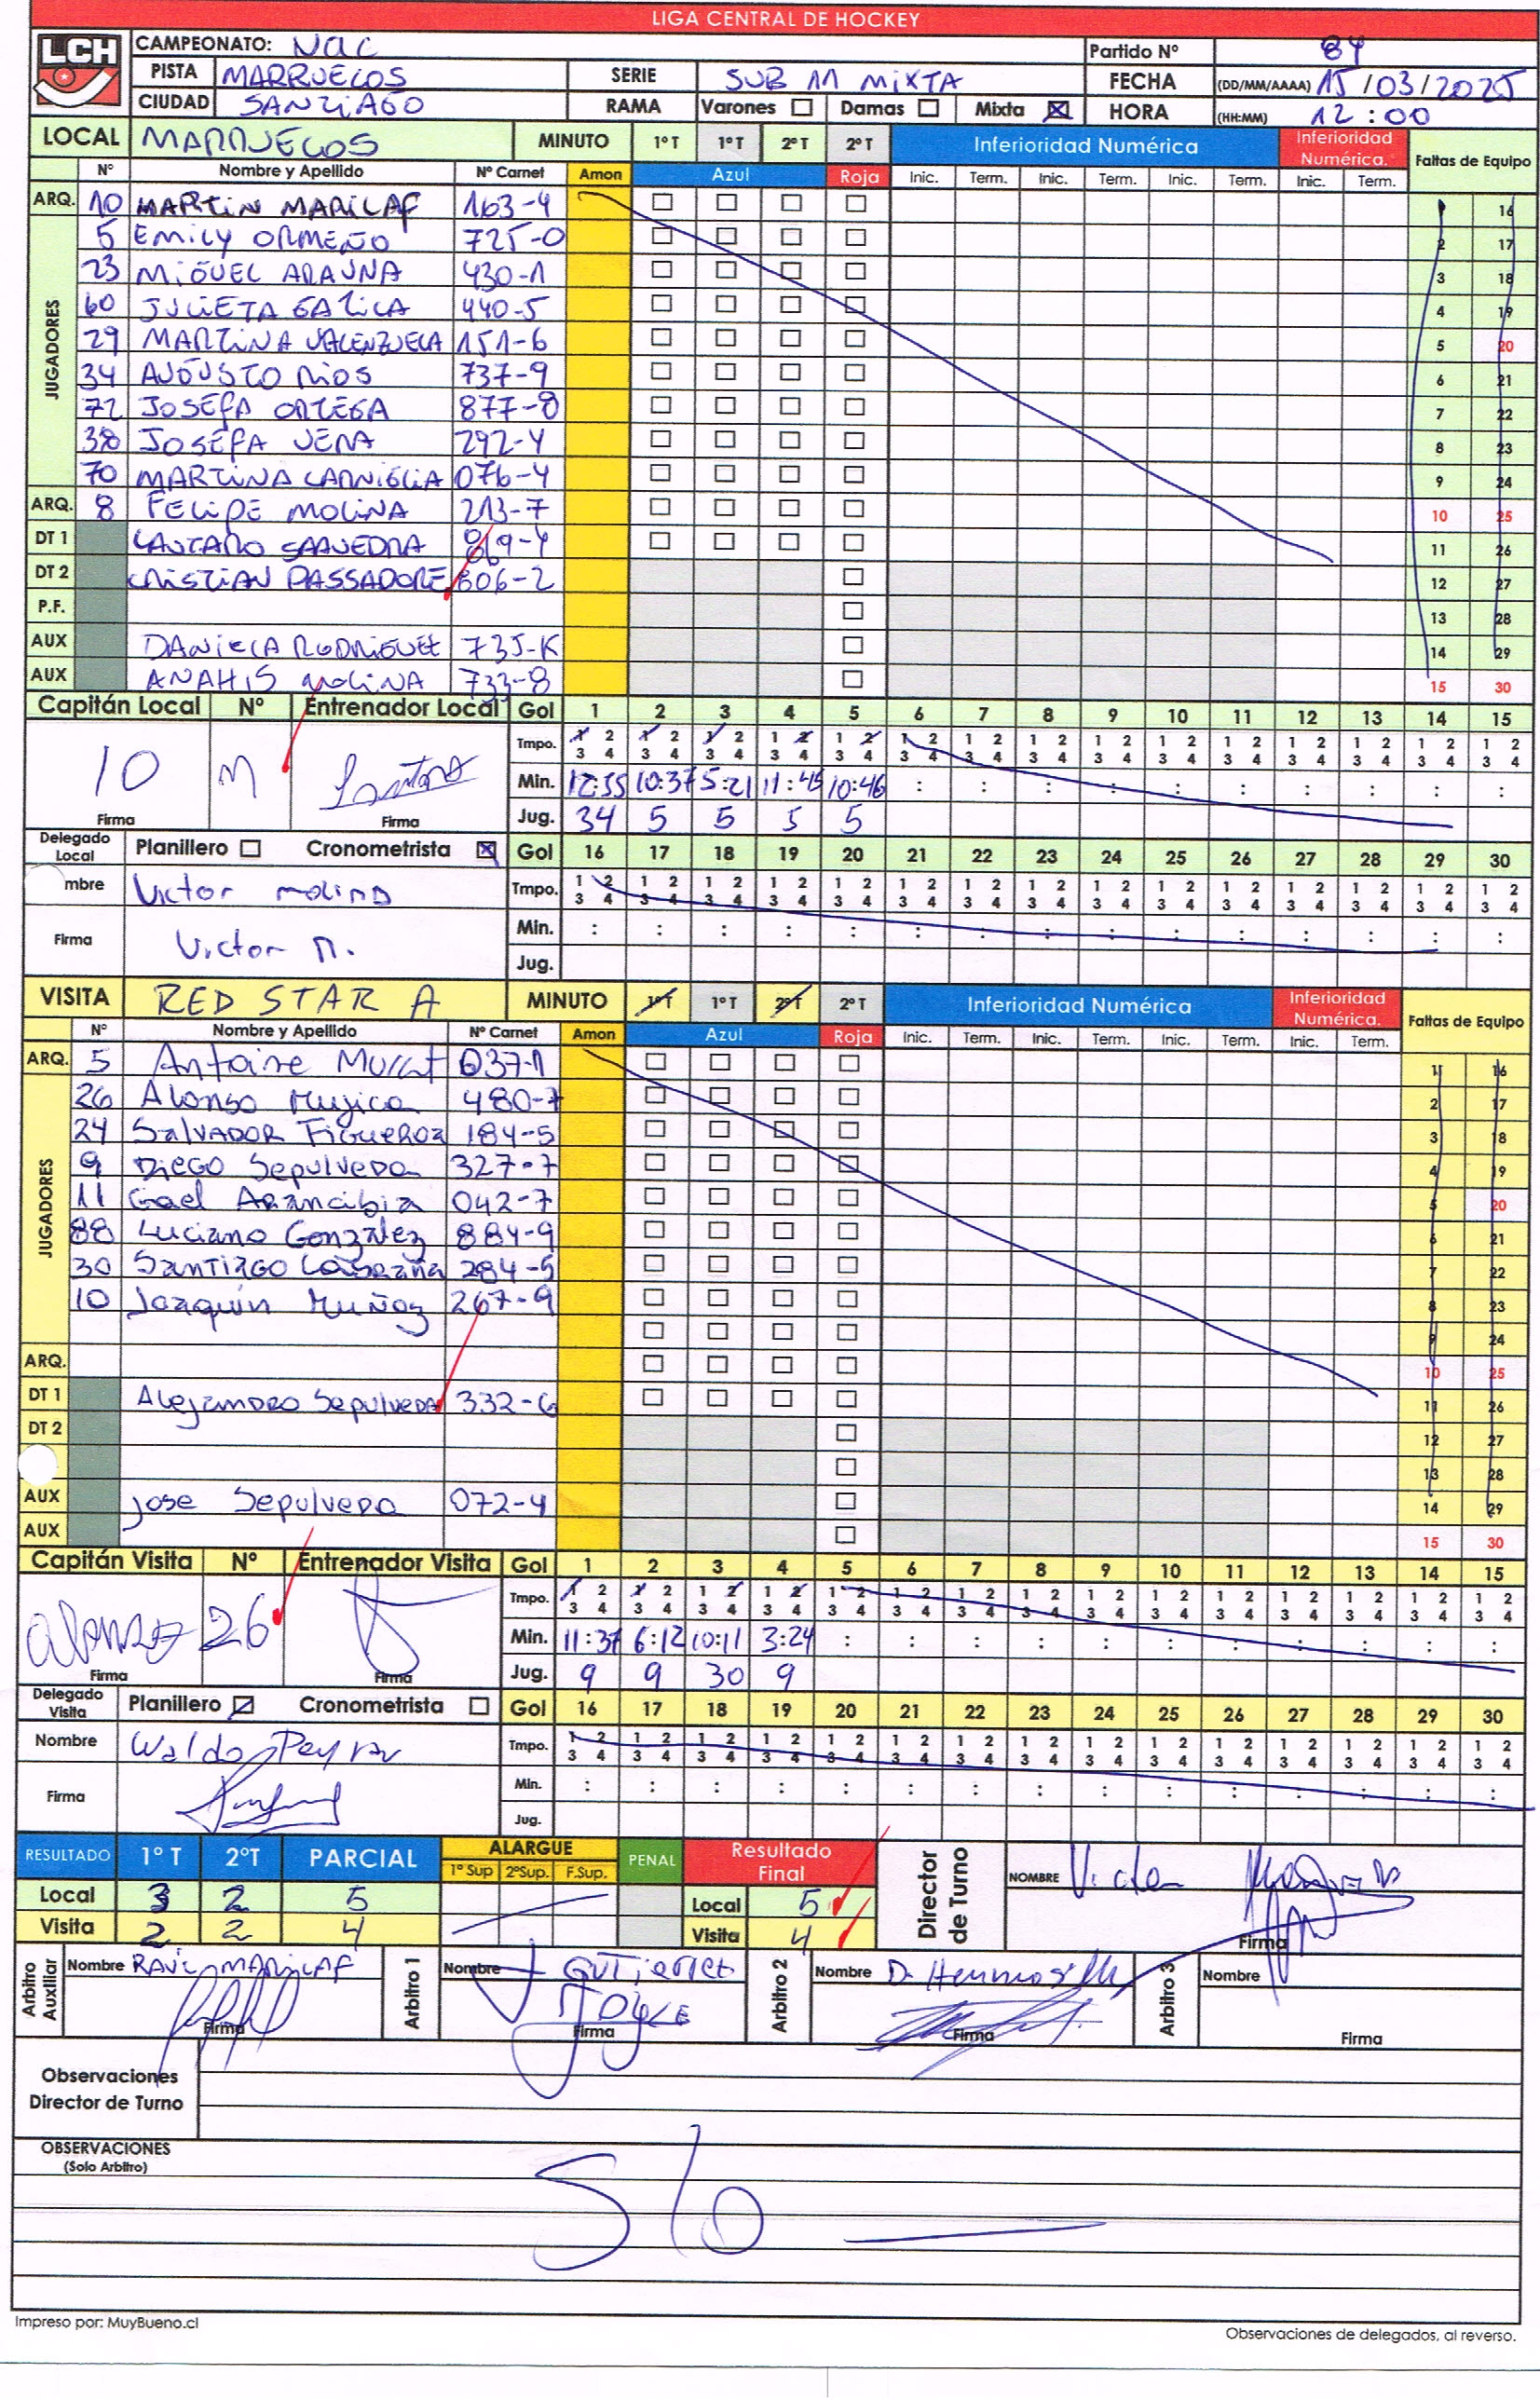 LIGA CENTRAL DE HOCKEY
LCH
CAMPEONATO: NAC Partido Nº 84
PISTA MARRUECOS SERIE SUB 11 MIXTA FECHA (DD/MM/AAAA) 15/03/2025
CIUDAD SANTIAGO RAMA Varones Damas Mixta HORA (HH:MM) 12:00
LOCAL MARRUECOS MINUTO 1º T 1º T 2º T 2º T Inferioridad Numérica Inferioridad Numérica. Faltas de Equipo
Nº Nombre y Apellido Nº Carnet Amon Azul Roja Inic. Term. Inic. Term. Inic. Term. Inic. Term.
ARQ. 10 MARTIN MARILAF 163-4 1 16
JUGADORES
5 EMILY ORMEÑO 725-0 2 17
23 MIGUEL ARAUNA 430-1 3 18
60 JULIETA GATICA 440-5 4 19
29 MARTINA VALENZUELA 151-6 5 20
34 AUGUSTO RIOS 737-9 6 21
72 JOSEFA ORTEGA 877-8 7 22
38 JOSEFA VERA 292-4 8 23
70 MARTINA CARNIGLIA 076-4 9 24
ARQ. 8 FELIPE MOLINA 213-7 10 25
DT 1 LAUTARO SAAVEDRA 869-4 11 26
DT 2 CRISTIAN PASSADORE 606-2 12 27
P.F. 13 28
AUX DANIELA RODRIGUEZ 735-K 14 29
AUX ANAHIS MOLINA 733-8 15 30
Capitán Local Nº Entrenador Local Gol 1 2 3 4 5 6 7 8 9 10 11 12 13 14 15
Tmpo. 1 2 1 2 1 2 1 2 1 2 1 2 1 2 1 2 1 2 1 2 1 2 1 2 1 2 1 2 1 2
3 4 3 4 3 4 3 4 3 4 3 4 3 4 3 4 3 4 3 4 3 4 3 4 3 4 3 4 3 4
10 M Min. 12:55 10:37 5:21 11:45 10:46 : : : : : : : : : :
Firma Firma Jug. 34 5 5 5 5
Delegado Local Planillero Cronometrista Gol 16 17 18 19 20 21 22 23 24 25 26 27 28 29 30
mbre Victor molina Tmpo. 1 2 1 2 1 2 1 2 1 2 1 2 1 2 1 2 1 2 1 2 1 2 1 2 1 2 1 2 1 2
3 4 3 4 3 4 3 4 3 4 3 4 3 4 3 4 3 4 3 4 3 4 3 4 3 4 3 4 3 4
Firma Victor M. Min. : : : : : : : : : : : : : : :
Jug.
VISITA RED STAR A MINUTO 1º T 1º T 2º T 2º T Inferioridad Numérica Inferioridad Numérica. Faltas de Equipo
Nº Nombre y Apellido Nº Carnet Amon Azul Roja Inic. Term. Inic. Term. Inic. Term. Inic. Term.
ARQ. 5 Antoine Murat 037-1 1 16
JUGADORES
26 Alonso Mujica 480-7 2 17
24 SALVADOR FIGUEROA 184-5 3 18
9 DIEGO Sepulveda 327-7 4 19
11 Gael Arancibia 042-7 5 20
88 Luciano González 884-9 6 21
30 SANTIAGO 284-5 7 22
10 Joaquín Muñoz 267-9 8 23
9 24
ARQ. 10 25
DT 1 Alejandro Sepulveda 332-6 11 26
DT 2 12 27
13 28
AUX Jose Sepulveda 072-4 14 29
AUX 15 30
Capitán Visita Nº Entrenador Visita Gol 1 2 3 4 5 6 7 8 9 10 11 12 13 14 15
Tmpo. 1 2 1 2 1 2 1 2 1 2 1 2 1 2 1 2 1 2 1 2 1 2 1 2 1 2 1 2 1 2
3 4 3 4 3 4 3 4 3 4 3 4 3 4 3 4 3 4 3 4 3 4 3 4 3 4 3 4 3 4
26 Min. 11:37 6:12 10:11 3:24 : : : : : : : : : : :
Firma Firma Jug. 9 9 30 9
Delegado Visita Planillero Cronometrista Gol 16 17 18 19 20 21 22 23 24 25 26 27 28 29 30
Nombre Waldo Tmpo. 1 2 1 2 1 2 1 2 1 2 1 2 1 2 1 2 1 2 1 2 1 2 1 2 1 2 1 2 1 2
3 4 3 4 3 4 3 4 3 4 3 4 3 4 3 4 3 4 3 4 3 4 3 4 3 4 3 4 3 4
Firma Min. : : : : : : : : : : : : : : :
Jug.
RESULTADO 1º T 2ºT PARCIAL ALARGUE 1º Sup 2ºSup. F.Sup. PENAL Resultado Final Director de Turno NOMBRE Firma
Local 3 2 5 Local 5
Visita 2 2 4 Visita 4
Arbitro Auxiliar Nombre RAUL MARILAF Firma Arbitro 1 Nombre J GUTIERREZ Firma Arbitro 2 Nombre Firma Arbitro 3 Nombre Firma
Observaciones
Director de Turno
OBSERVACIONES
(Solo Arbitro)
S/O
Impreso por: MuyBueno.cl
Observaciones de delegados, al reverso.